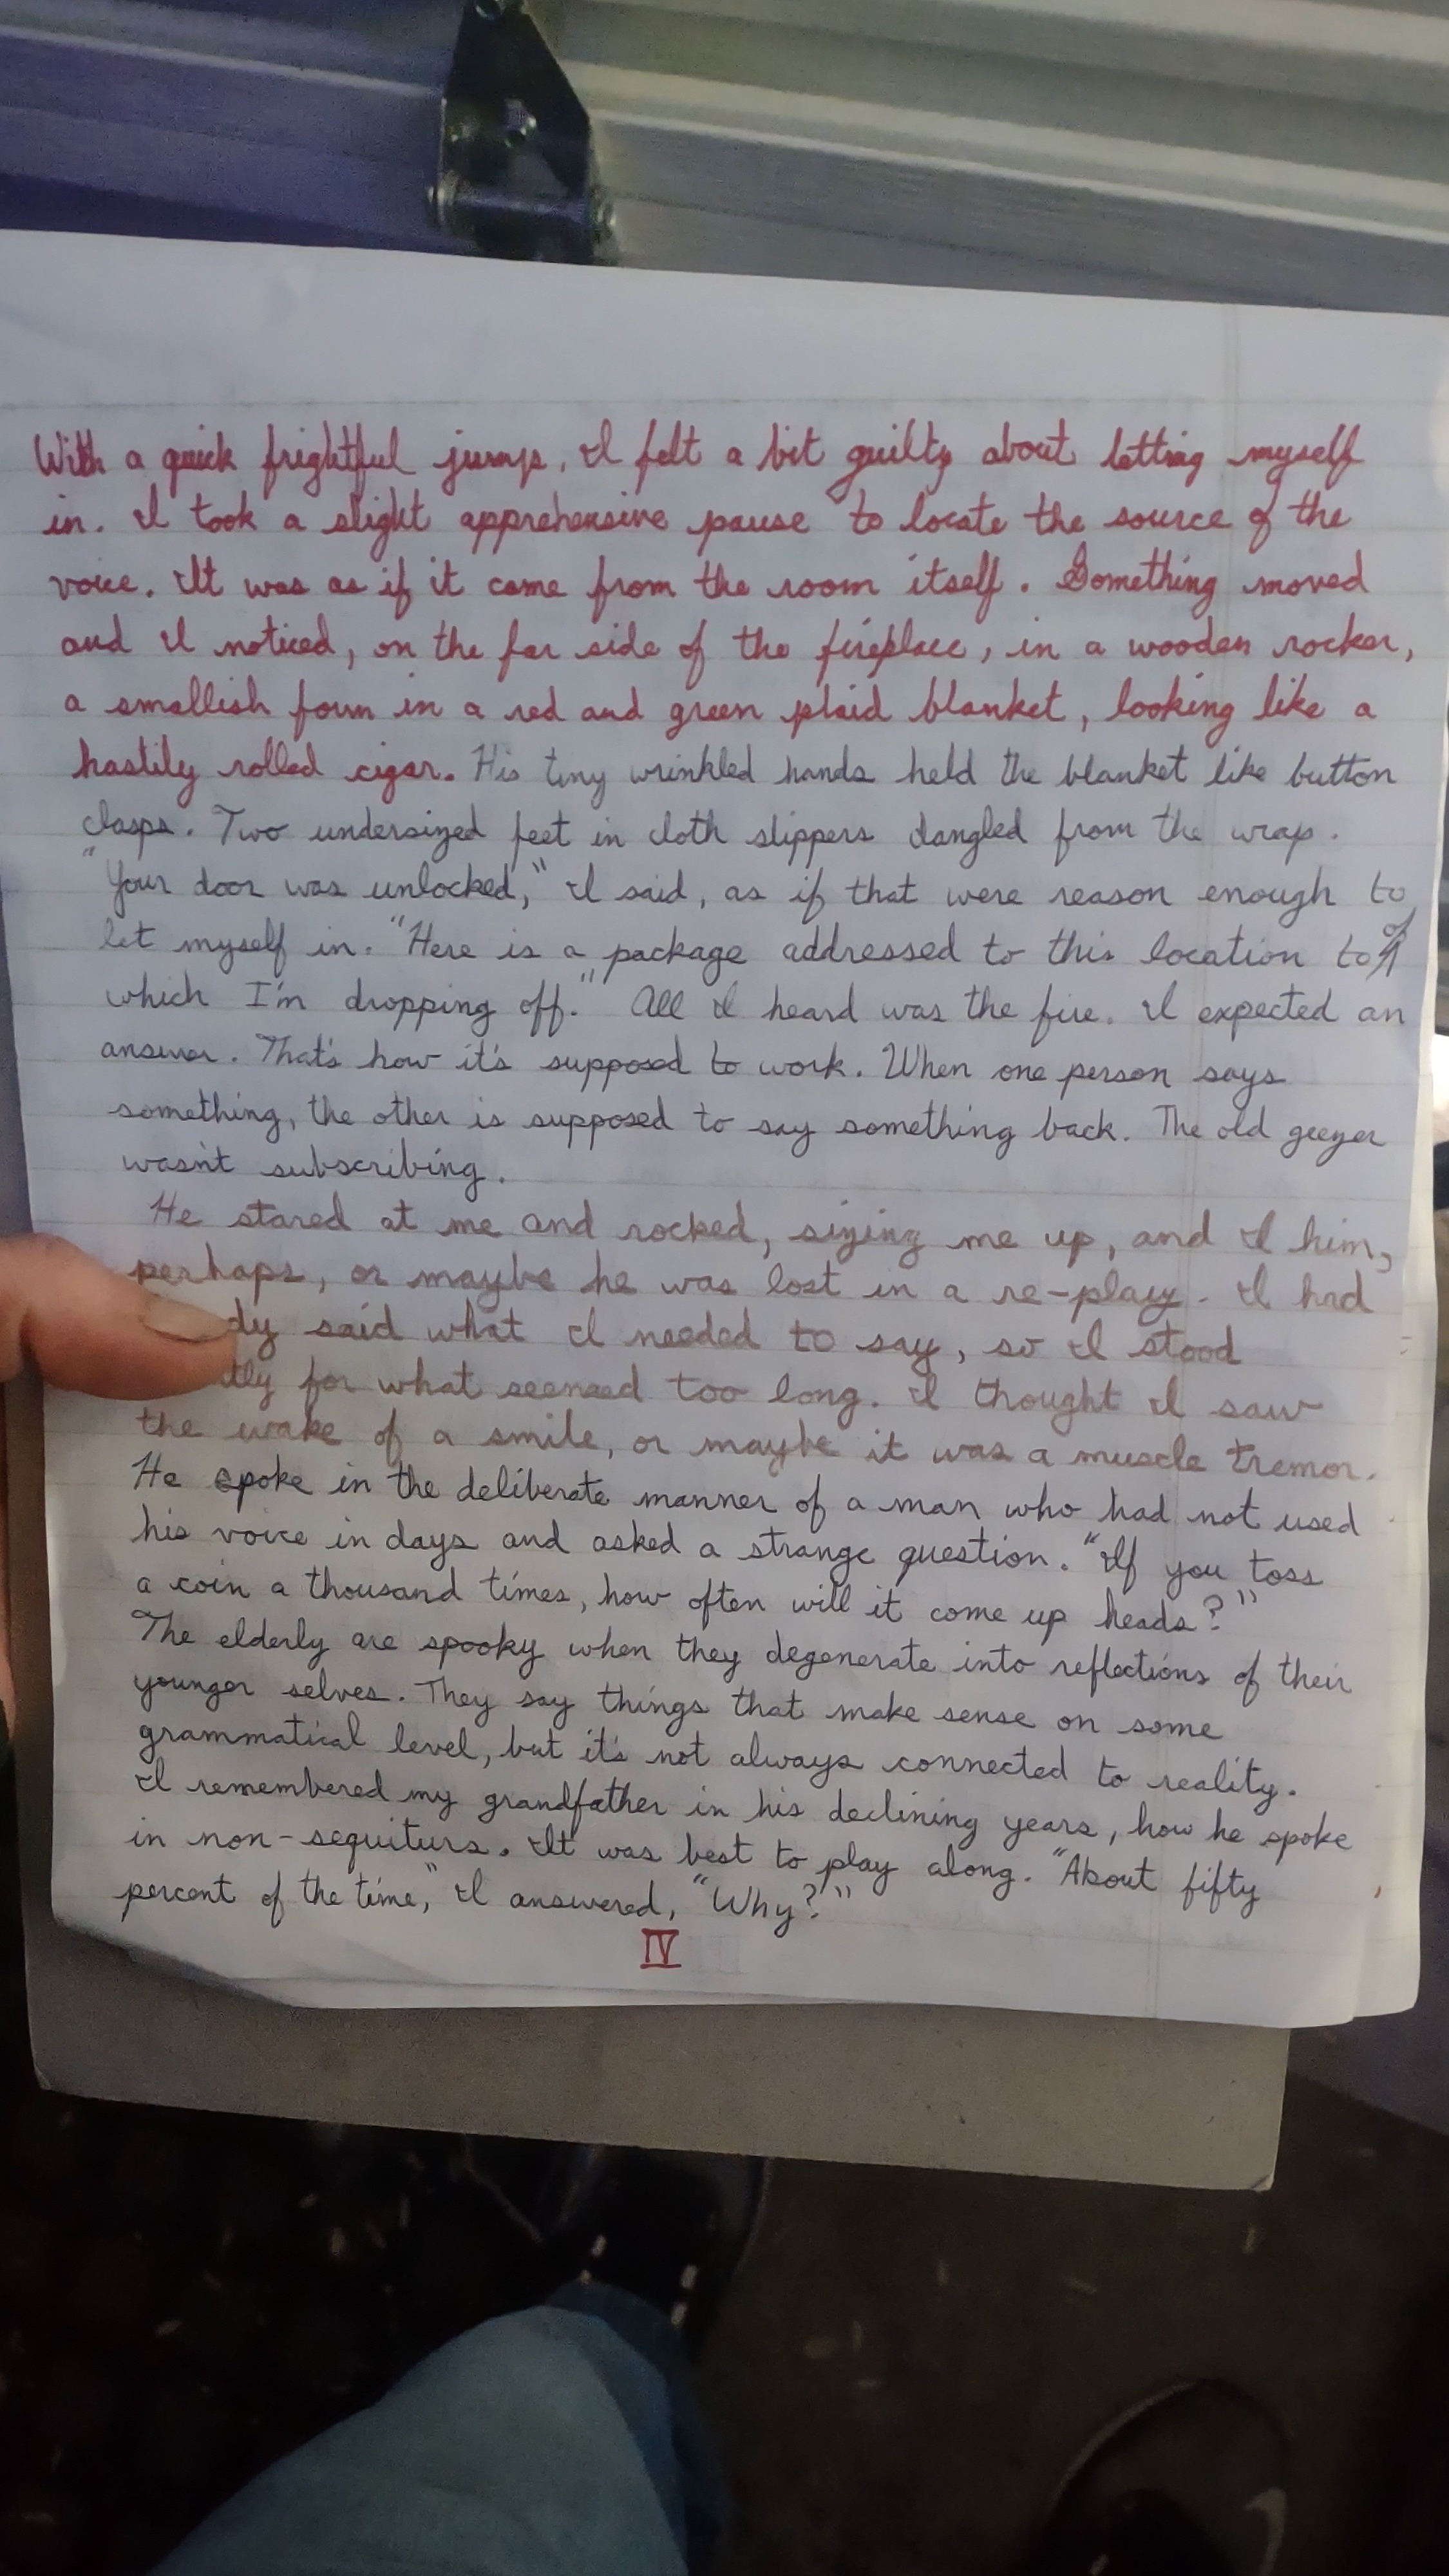 With a quick frightful jump, I felt a bit guilty about letting myself
in. I took a slight apprehensive pause to locate the source of the
voice. It was as if it came from the room itself. Something moved
and I noticed, on the far side of the fireplace, in a wooden rocker,
a smallish form in a red and green plaid blanket, looking like a
hastily rolled cigar. His tiny wrinkled hands held the blanket like button
clasps. Two undersized feet in cloth slippers dangled from the wrap.
"Your door was unlocked," I said, as if that were reason enough to
let myself in. "Here is a package addressed to this location to of
which I'm dropping off." All I heard was the fire. I expected an
answer. That's how it's supposed to work. When one person says
something, the other is supposed to say something back. The old geezer
wasn't subscribing.
He stared at me and rocked, sizing me up, and I him,
perhaps, or maybe he was lost in a re-play. I had
dy said what I needed to say, so I stood
tly for what seemed too long. I thought I saw
the wake of a smile, or maybe it was a muscle tremor.
He spoke in the deliberate manner of a man who had not used
his voice in days and asked a strange question. "If you toss
a coin a thousand times, how often will it come up heads?"
The elderly are spooky when they degenerate into reflections of their
younger selves. They say things that make sense on some
grammatical level, but it's not always connected to reality.
I remembered my grandfather in his declining years, how he spoke
in non-sequiturs. It was best to play along. "About fifty
percent of the time," I answered, "Why?"
IV